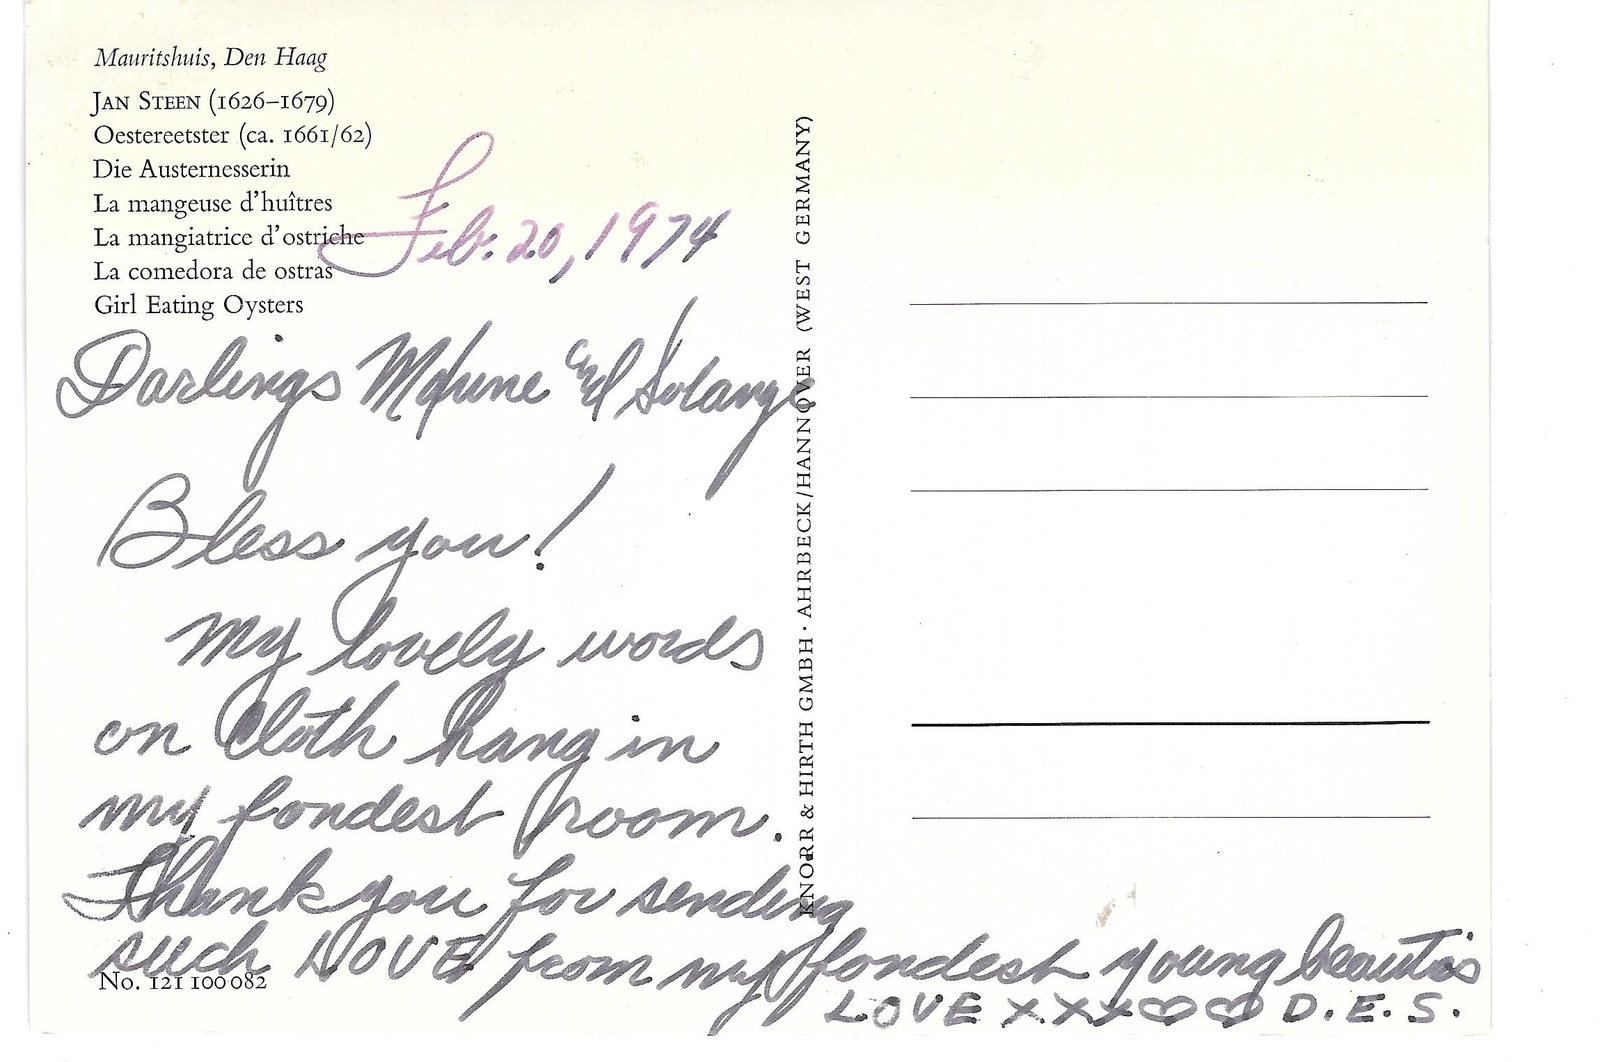 Mauritshuis, Den Haag
JAN STEEN (1626–1679)
Oestereetster (ca. 1661/62)
Die Austernesserin
La mangeuse d'huîtres
La mangiatrice d'ostriche
La comedora de ostras
Girl Eating Oysters
Feb. 20, 1974
Darlings Solange
Bless you!
My lovely words
on cloth hang in
my fondest room.
Thank you for sending
such LOVE from my fondest young beauties
LOVE XXX♡♡ D.E.S.
No. 121 100 082
KNORR & HIRTH GMBH · AHRBECK/HANNOVER (WEST GERMANY)